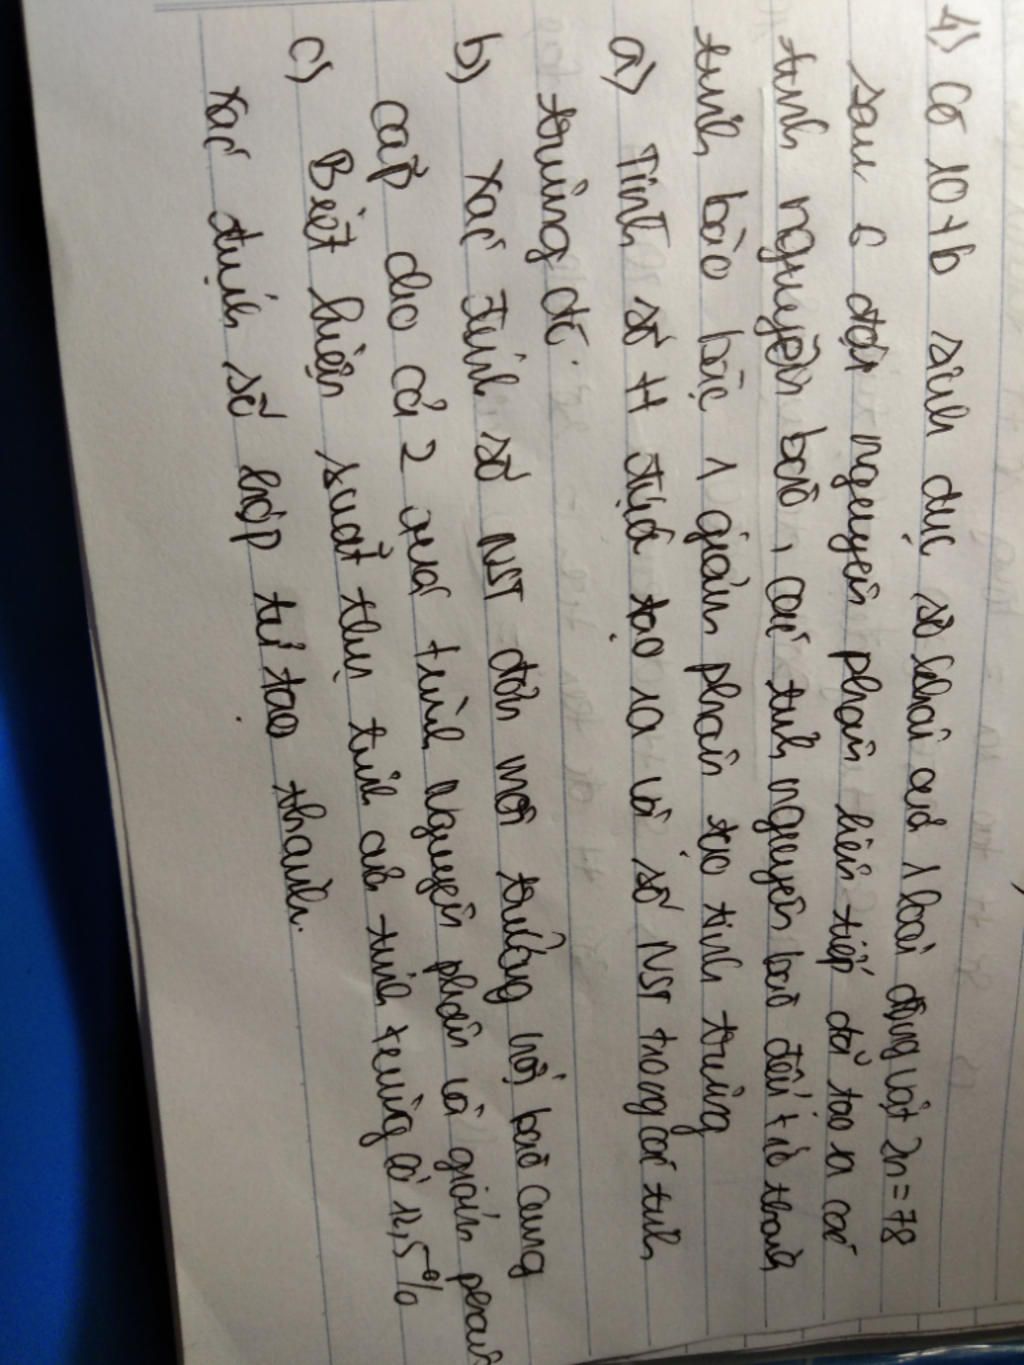 4) Có 10 tb sinh dục sơ khai của 1 loài động vật 2n=78
sau 6 đợt nguyên phân liên tiếp đã tạo ra các
tinh nguyên bào, các tinh nguyên bào đều trở thành
tinh bào bậc 1 giảm phân tạo tinh trùng
a) Tính số tt được tạo ra và số NST trong các tinh
trùng đó.
b) Xác định số NST đơn môi trường nội bào cung
cấp cho cả 2 quá trình nguyên phân và giảm phân
c) Biết hiệu suất thụ tinh của tinh trùng là 12,5%
xác định số hợp tử tạo thành.